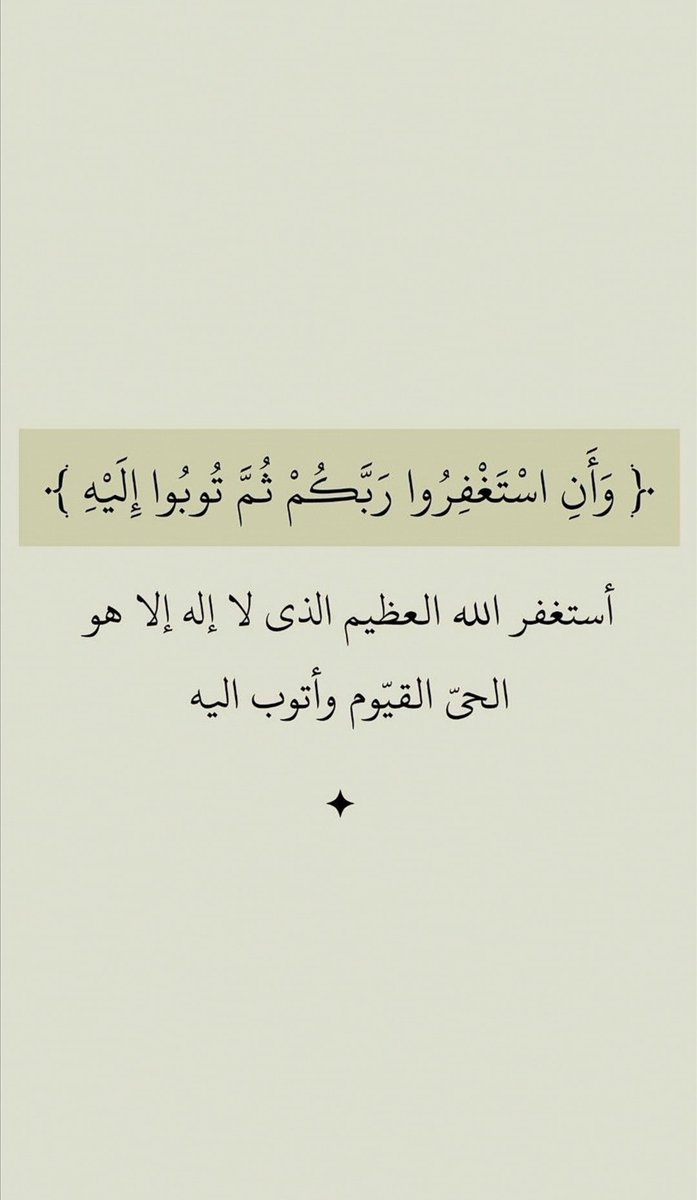 ﴿ وَأَنِ اسْتَغْفِرُوا رَبَّكُمْ ثُمَّ تُوبُوا إِلَيْهِ ﴾
أستغفر الله العظيم الذى لا إله إلا هو
الحىّ القيّوم وأتوب اليه